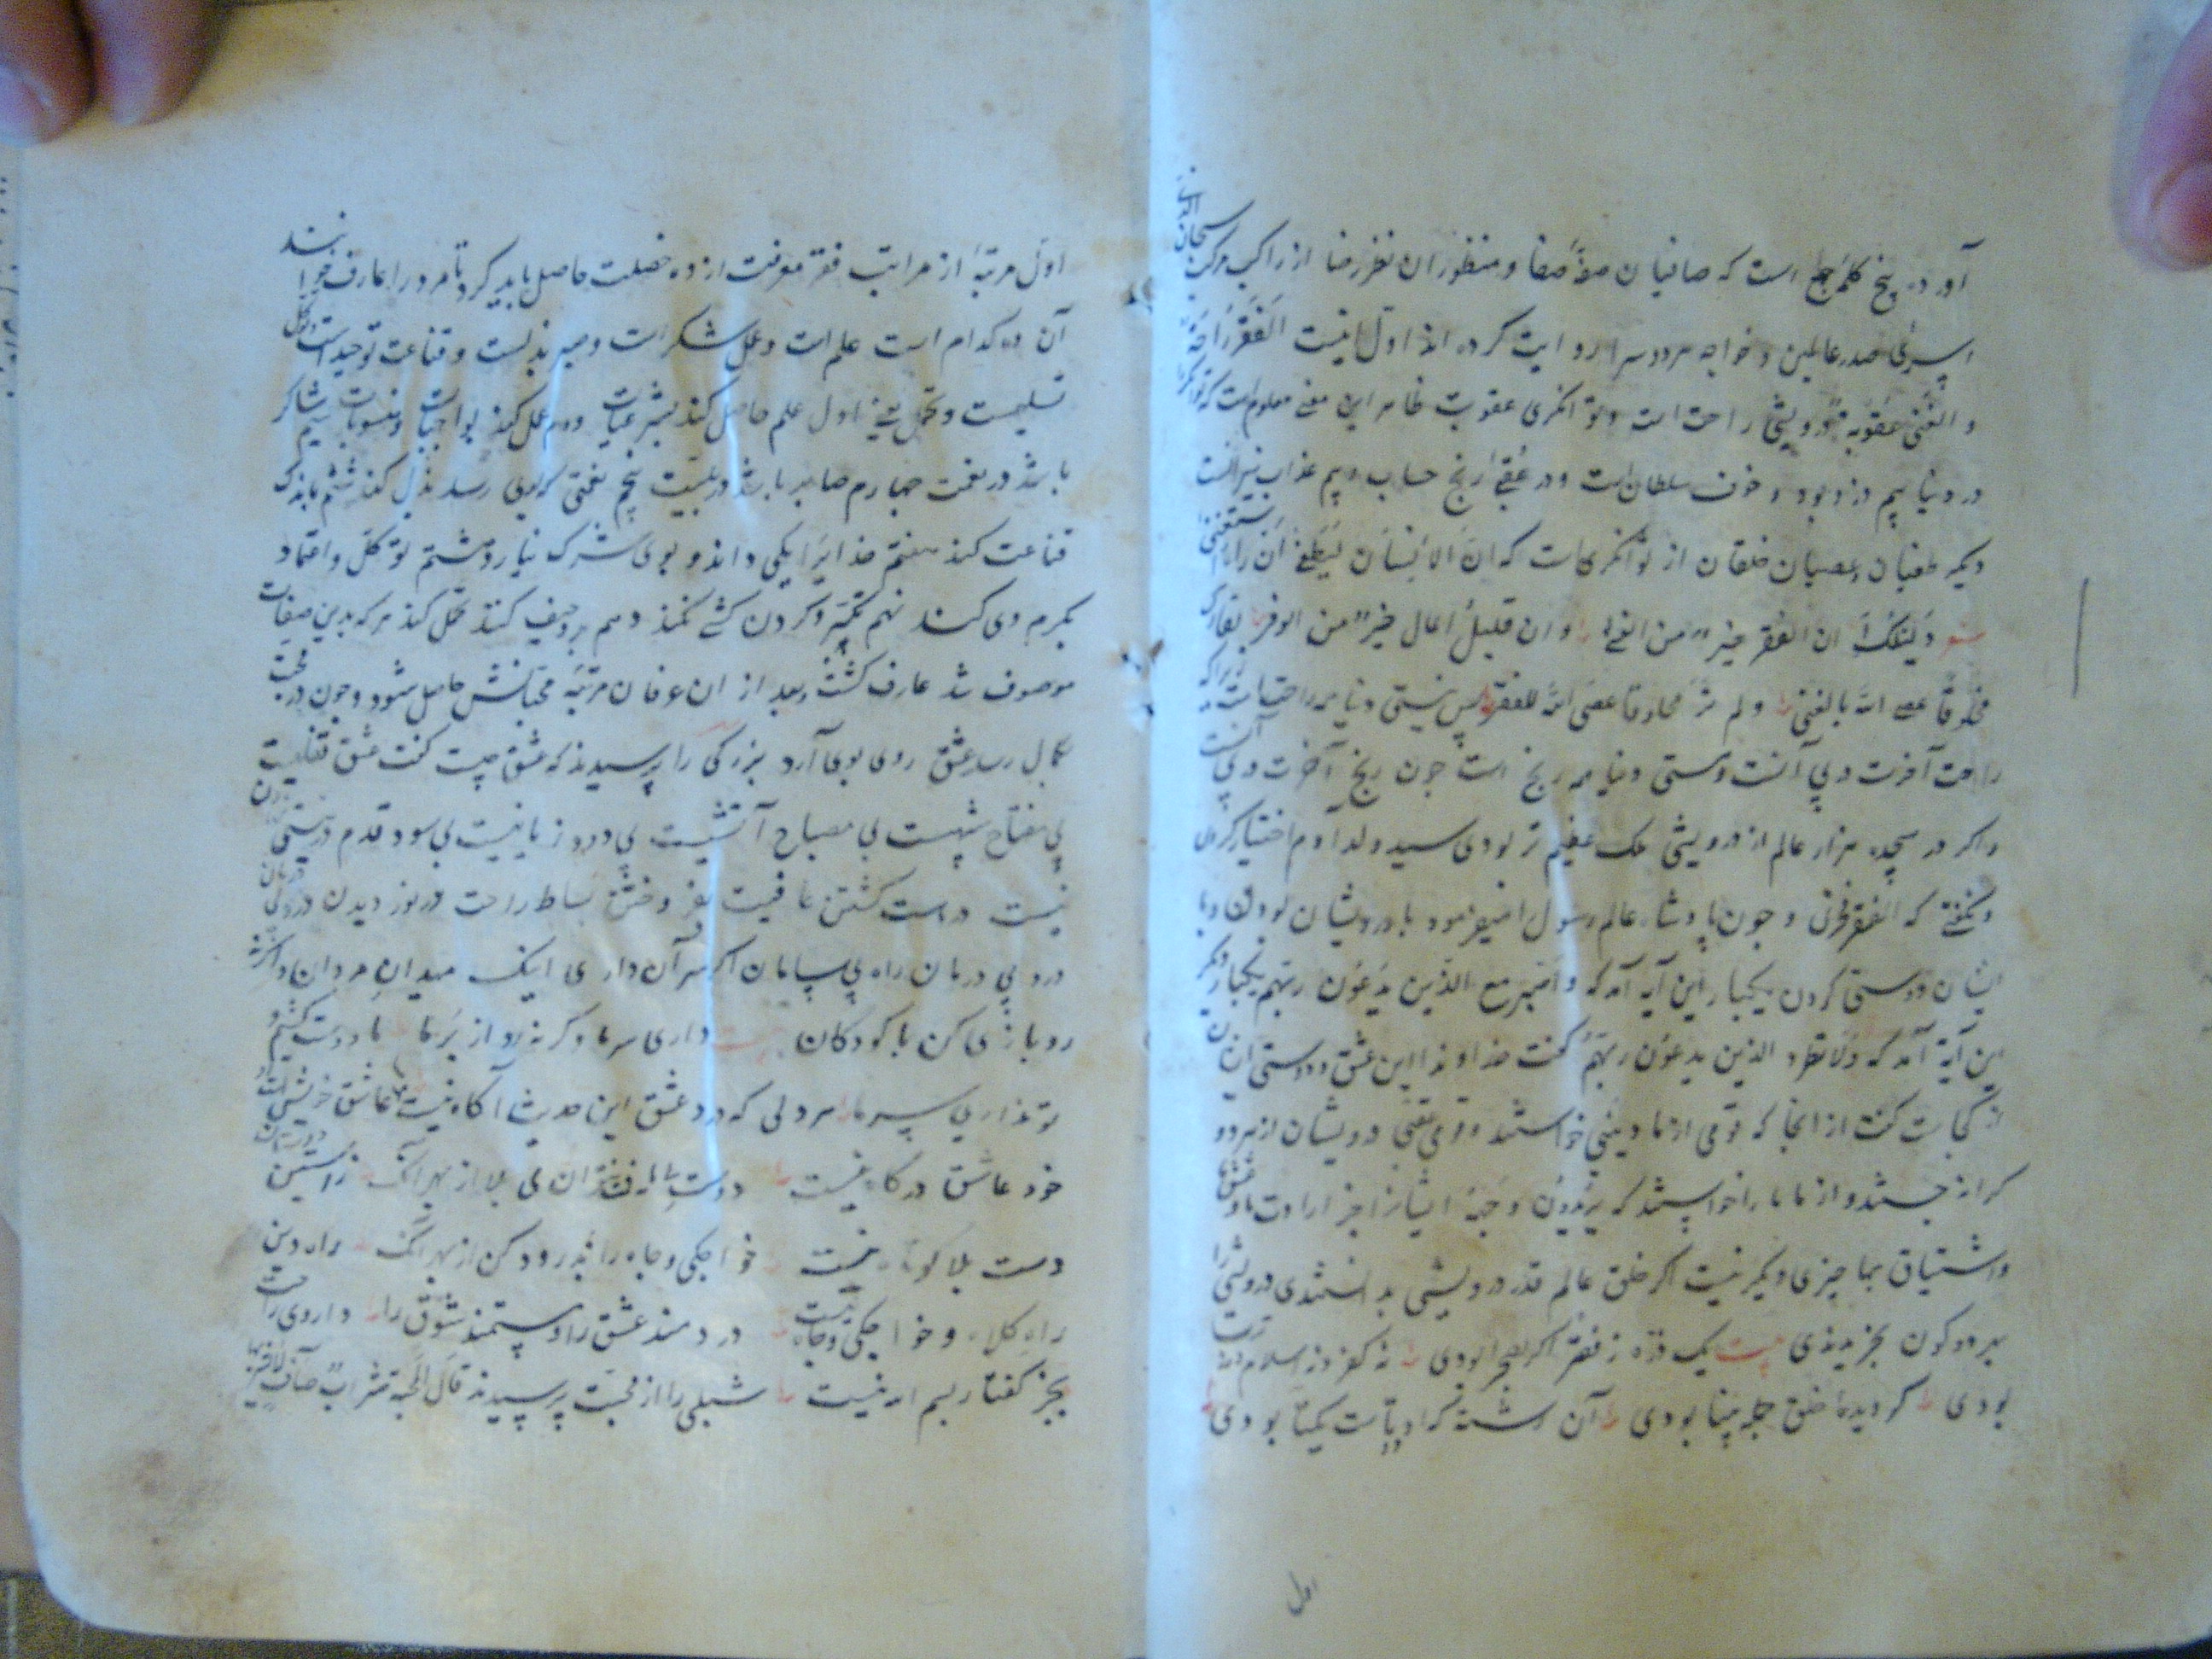 آورده پنج کلمه جمع است که صافیان صفهٔ صفا و منظوران نظر رضا از راکب مرکب سبحان الذی
اسری صدر عالمین و خواجه هر دو سرا روایت کرده اند اول اینست الفقر راحة
و الغنی عقوبة درویشی راحت است و توانگری عقوبت ظاهر این معنی معلوم است که توانگر را
در دنیا بیم دزد بود و خوف سلطان است و در عقبی رنج حساب و بیم عذاب نیرانست
دیگر طغیان و عصیان خلقان از توانگریست که ان الانسان لیطغی ان رآه استغنی
شعر دلیلک ان الفقر خیر من الغنی و ان قلیل المال خیر من الوفر لقاؤک
مخلوقا عصی الله بالغنی و لم تر مخلوقا عصی الله للفقر پس نیستی دنیا همه راحتست زیرا که
راحت آخرت در پی آنست و هستی دنیا همه رنج است چون رنج آخرت در پی آنست
و اگر در هجده هزار عالم از درویشی ملک عظیم تر بودی سید ولد آدم اختیار کردی
و نگفتی که الفقر فخری و چون پادشاه عالم رسول را میفرمود با درویشان بودن و با
ایشان دوستی کردن یکبار این آیه آمد که واصبر مع الذین یدعون ربهم یکبار دیگر
این آیة آمد که ولا تطرد الذین یدعون ربهم گفت خداوندا این عشق و دوستی ایشان
از کجاست گفت از انجا که قومی از ما دنیی خواستند و قومی عقبی درویشان از هر دو
کرانه جستند و از ما ما را خواستند که یریدون وجهه ایشانرا جز ارادت ما و عشق
و اشتیاق بما چیزی دیگر نیست اگر خلق عالم قدر درویشی بدانستندی درویشی را
بهر دو کون بخریدندی بیت یک ذره ز فقر اگر بصحرا بودی نه کفر و نه اسلام نه ترسا
بودی گر دیدهٔ خلق جمله بینا بودی آن رشته که دوتاست یکتا بودی
اول
اول مرتبه از مراتب فقر معرفت از ده خصلت حاصل باید کرد تا مرد را عارف خوانند
آن ده کدام است علم است و عمل شکر است و صبر بذلست و قناعت توحید است و توکل
تسلیمست و تحمل یعنی اول علم حاصل کند بشرعیات دوم عمل کند بواجبات و مسنونات سیم شاکر
باشد در نعمت چهارم صابر باشد در بلیت پنجم نعمتی که بوی رسد بذل کند ششم باندک
قناعت کند هفتم خدایرا یکی داند و بوی شرک نیارد هشتم توکل و اعتماد
بکرم وی کند نهم تکبر و گردن کشی نکند دهم بر وی حیف کنند تحمل کند هر که بدین صفات
موصوف شد عارف گشت و بعد از ان عرفان مرتبه محبتش حاصل شود و چون در محبت
بکمال رسد عشق روی بوی آرد بزرگی را پرسیدند که عشق چیست گفت عشق قفلیست
بی مفتاح شبهست بی مصباح آتشیست بی دود زیانیست بی سود قدم در نیستی زدن
نیست در هست گشتن عافیت بفروختن بساط راحت در نوردیدن درد بی درمان
درد بی درمان راه بی پایان اگر سر آن داری اینک میدان مردان و اگر نه
رو بازی کن با کودکان بیت داری سر ما وگرنه رو از بر ما ما دوست کشیم و
تو نداری سر ما هر دلی که درد عشق این حدیث آگاه نیست عاشق خویش است او
خود عاشق درگاه نیست دوستی
دست بلا کوتاه نیست خواجگی و جاه را بدرود کن از بهر آنک راه دین
راه کلاه و خواجگی و جاه نیست دردمند عشق را و مستمند شوق را داروی راحت
بجز گفتار بسم الله نیست شبلی را از محبت پرسیدند قال المحبة شراب صاف